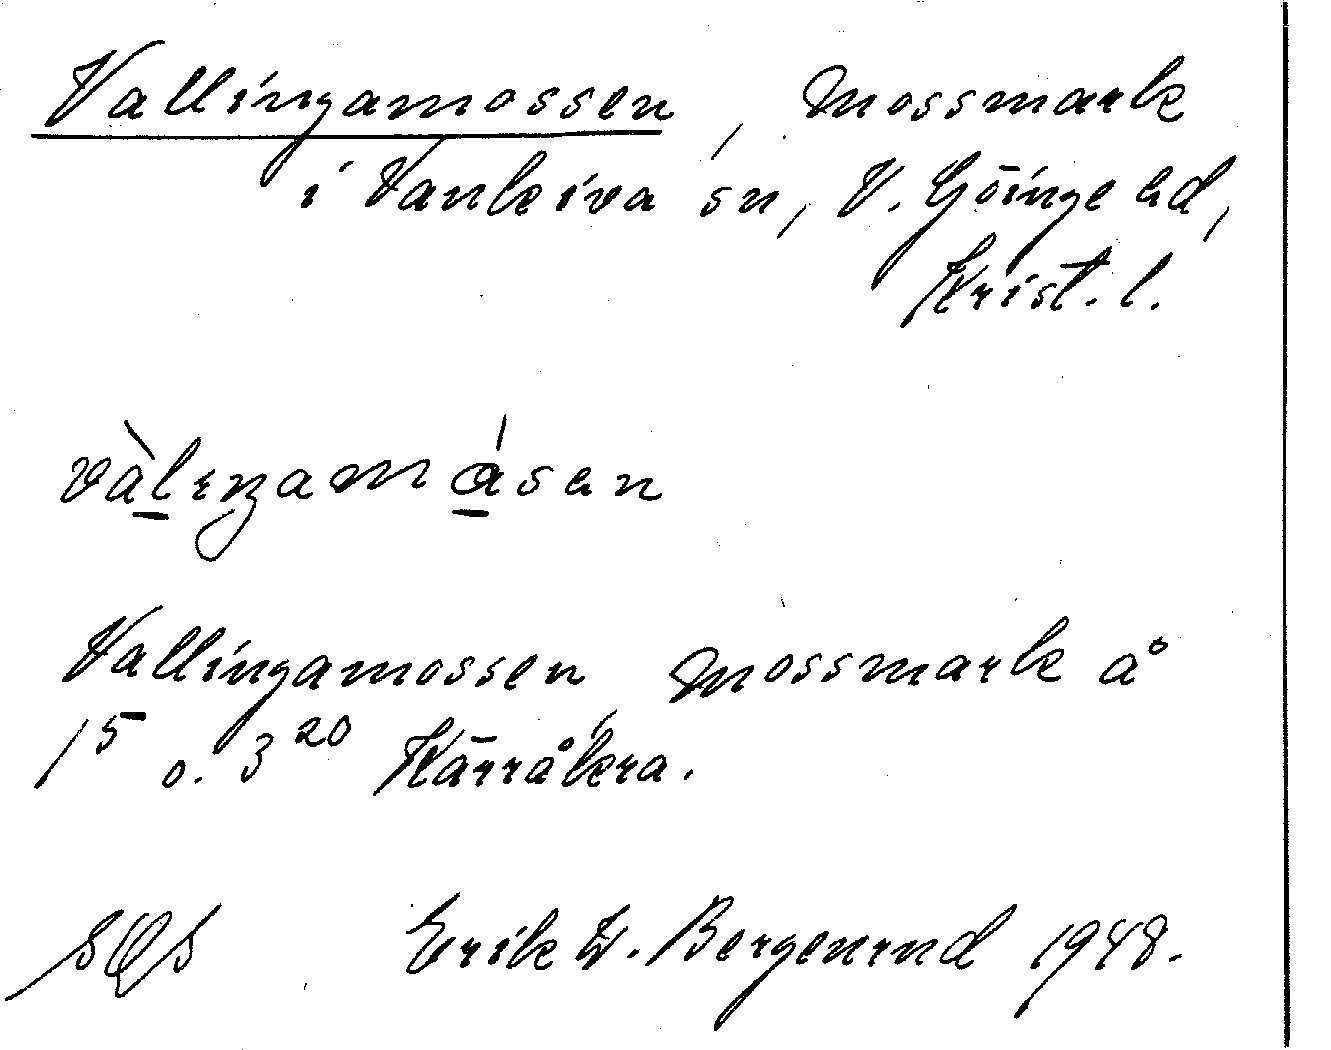 Vallingamossen, Mossmark
i Vankiva sn, V. Göinge hd,
Krist. l.
Vallingamossen, Mossmark å
1⁵ o. 3²⁰ Kärråkra.
SOS Erik W. Bergenrud 1948.